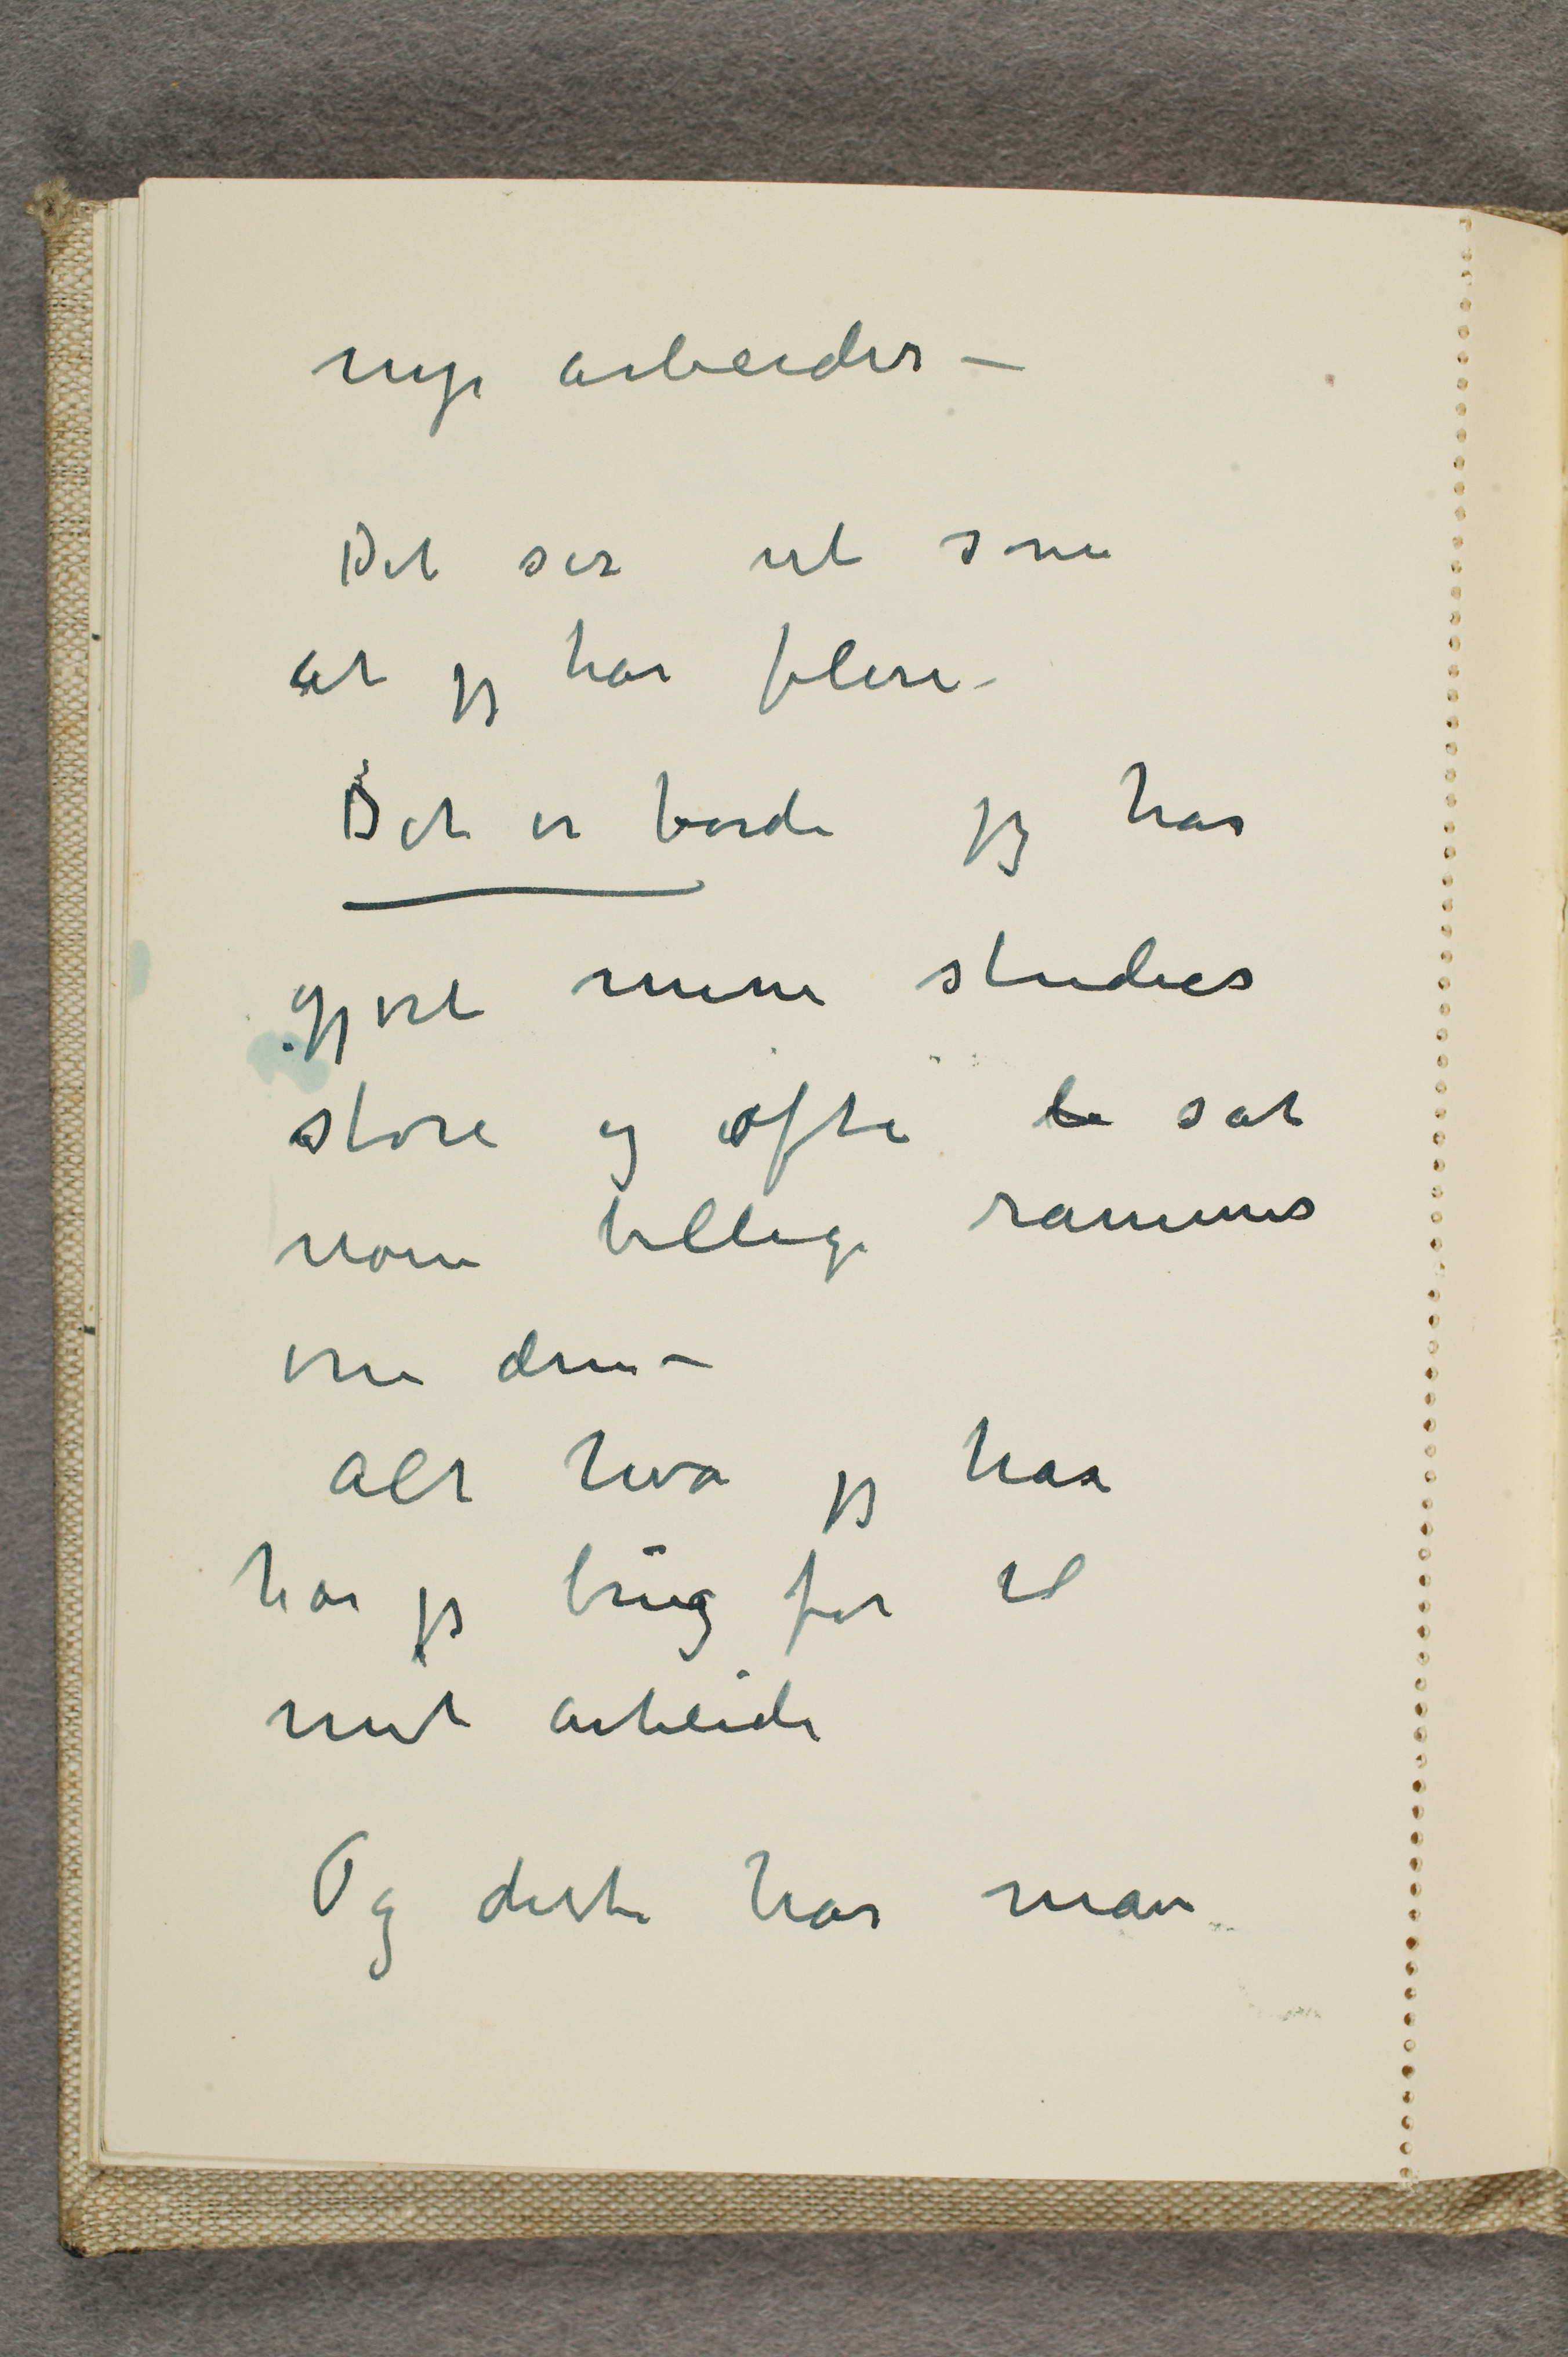 nye arbeider –
Det ser ut som
at jeg har flere –
Det er fordi jeg har
gjort mine studier
store og ofte sat
noen billige rammer
om dem –
Alt hva jeg har
har jeg brug for til
mit arbeide
Og dette har man